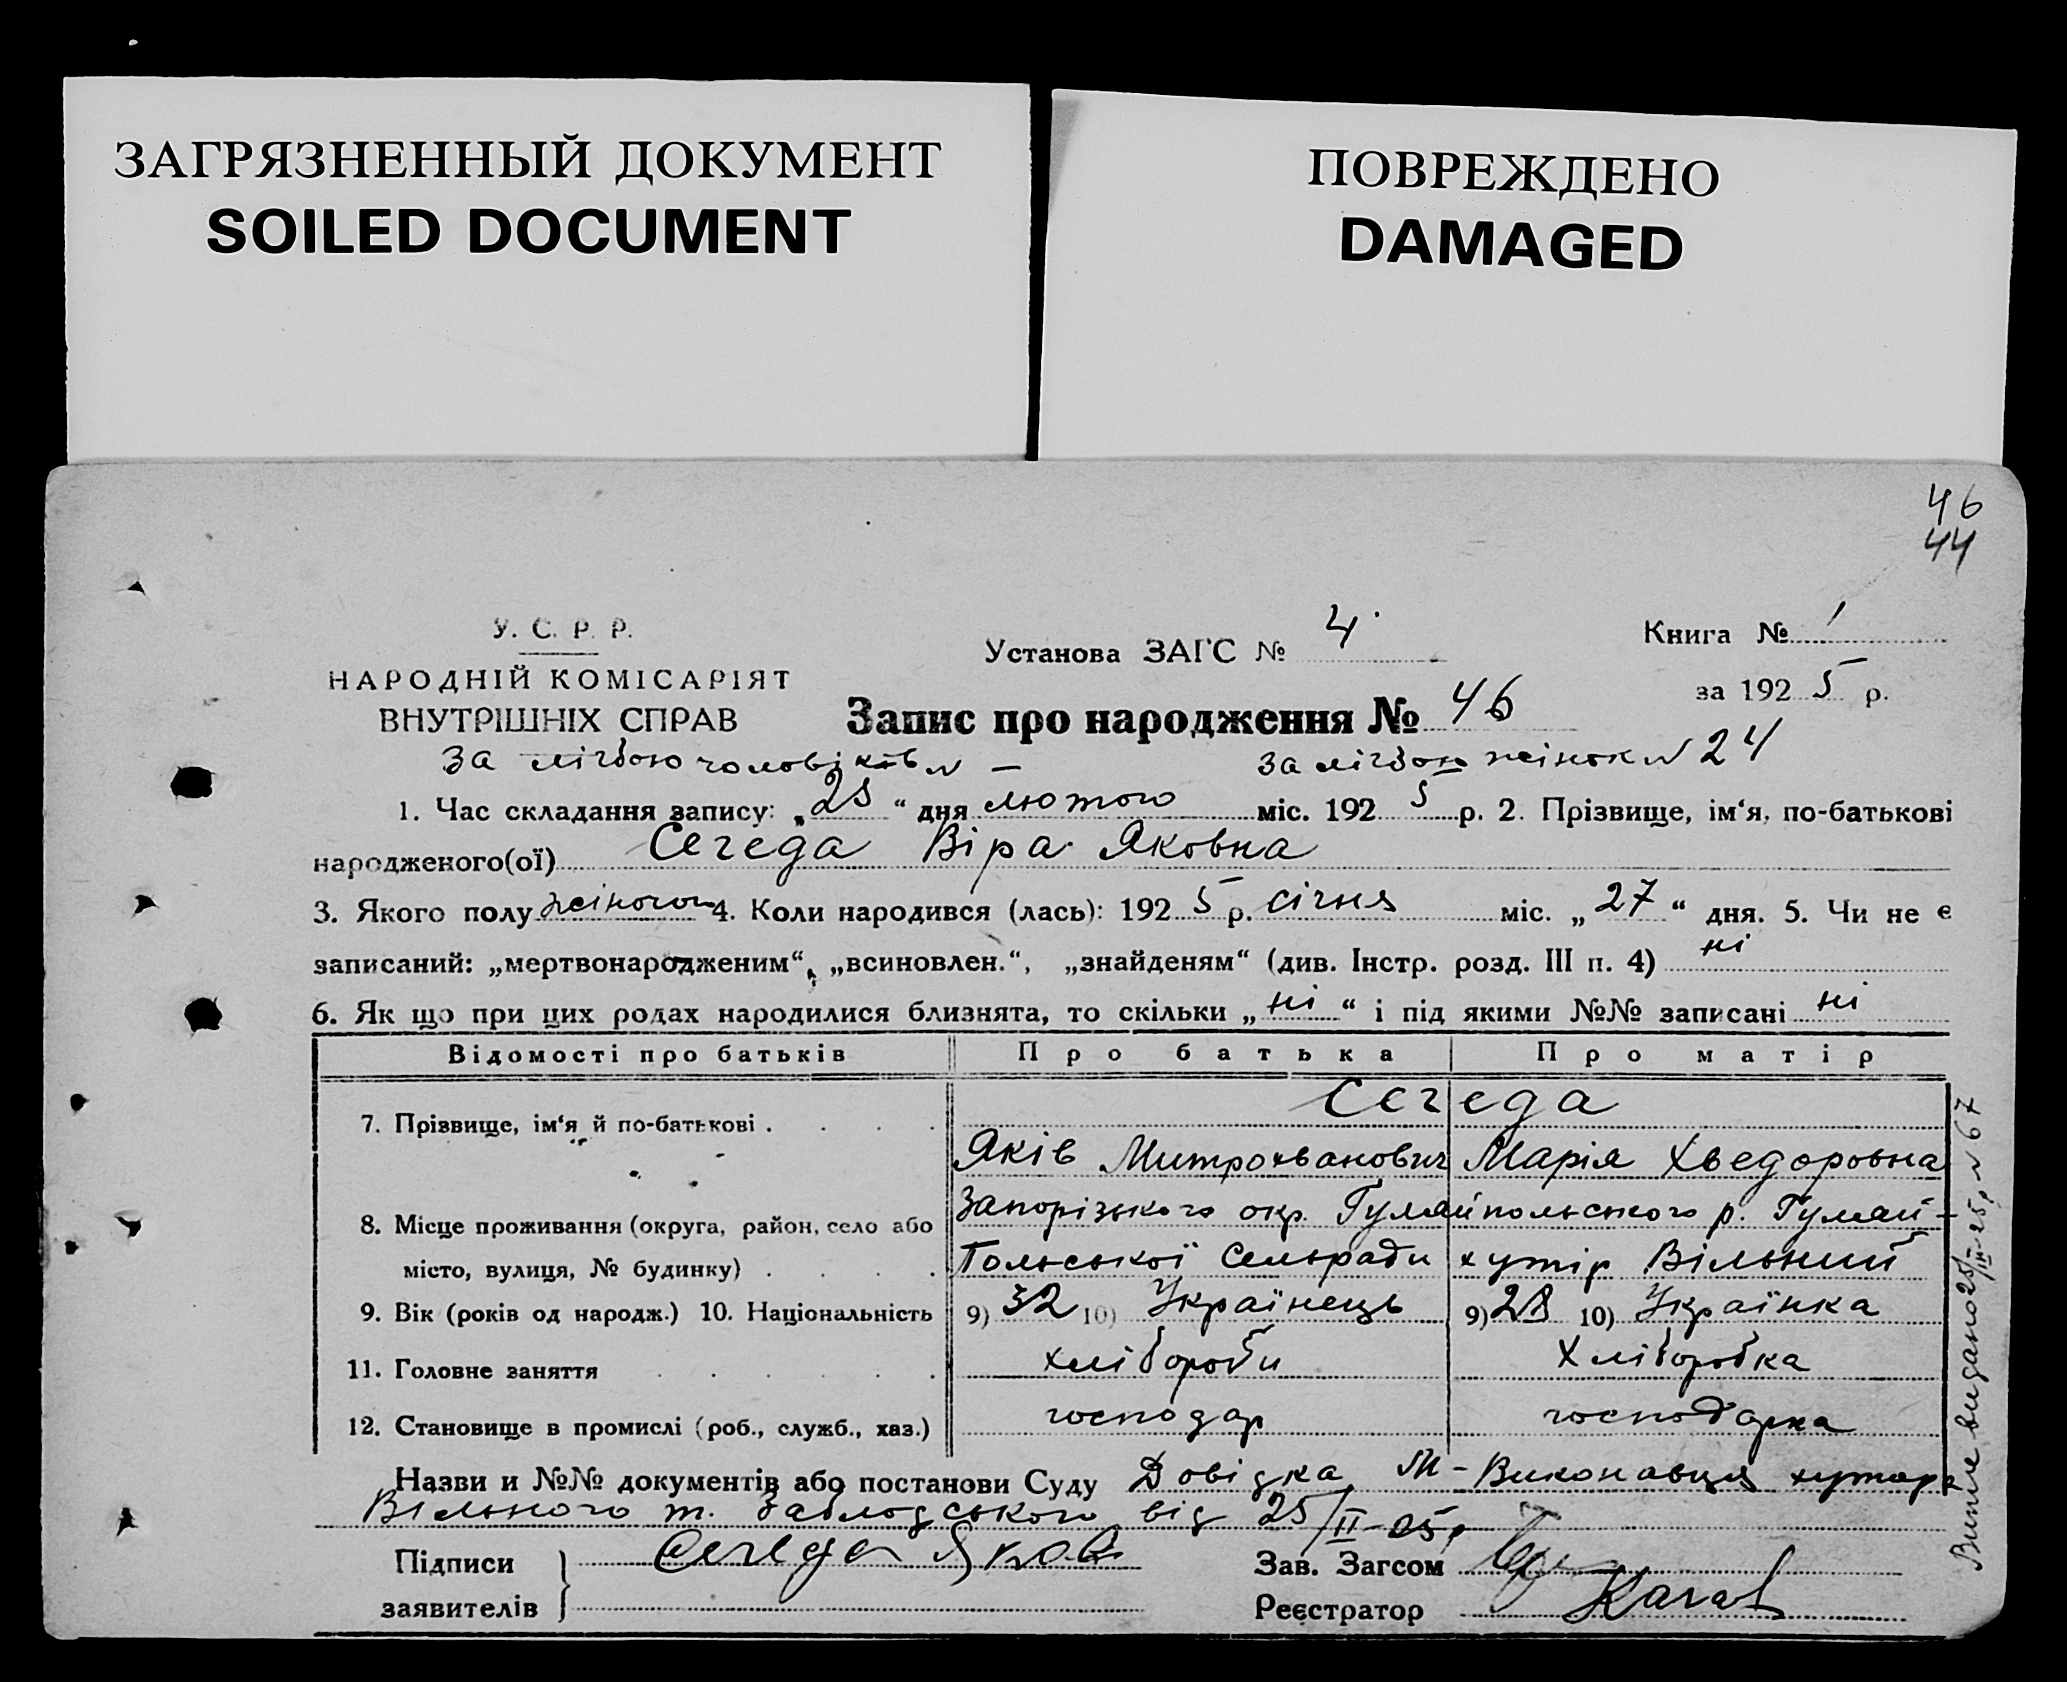 ЗАГРЯЗНЕННЫЙ ДОКУМЕНТ
SOILED DOCUMENT
ПОВРЕЖДЕНО
DAMAGED
46
44
У. С. Р. Р.
НАРОДНІЙ КОМІСАРІЯТ
ВНУТРІШНІХ СПРАВ
Установа ЗАГС № 4
Книга № 1
за 1925 р.
Запис про народження № 46
За лічбою чоловіків № —
За лічбою жінок № 24
1. Час складання запису: „25“ дня лютого міс. 1925 р. 2. Прізвище, ім‘я, по-батькові
народженого(ої) Сегеда Віра Яковна
3. Якого полу жіночог 4. Коли народився (лась): 1925 р. січня міс. „27“ дня. 5. Чи не є
записаний: „мертвонародженим“, „всиновлен.“, „знайденям“ (див. Інстр. розд. III п. 4) ні
6. Як що при цих родах народилися близнята, то скільки „ні“ і під якими №№ записані ні
Відомості про батьків Про батька Про матір
Сегеда
7. Прізвище, ім‘я й по-батькові . . . .
Яків Митрохванович Марія Хведоровна
8. Місце проживання (округа, район, село або Запорізького окр. Гуляйпольського р. Гуляй-
місто, вулиця, № будинку) . . . . Польської Сельради хутір Вільний
9. Вік (років од народж.) 10. Національність 9) 32 10) Українець 9) 28 10) Українка
11. Головне заняття . . . . . . хлібороби Хліборобка
12. Становище в промислі (роб., служб., хаз.) господар господарка
Назви и №№ документів або постанови Суду Довідка М-Виконавця хутора
Вільного т. від 25/II-25р
Підписи Сегеда Яков
заявителів
Зав. Загсом
Реєстратор
Витяг видано 25/III-25р № 67